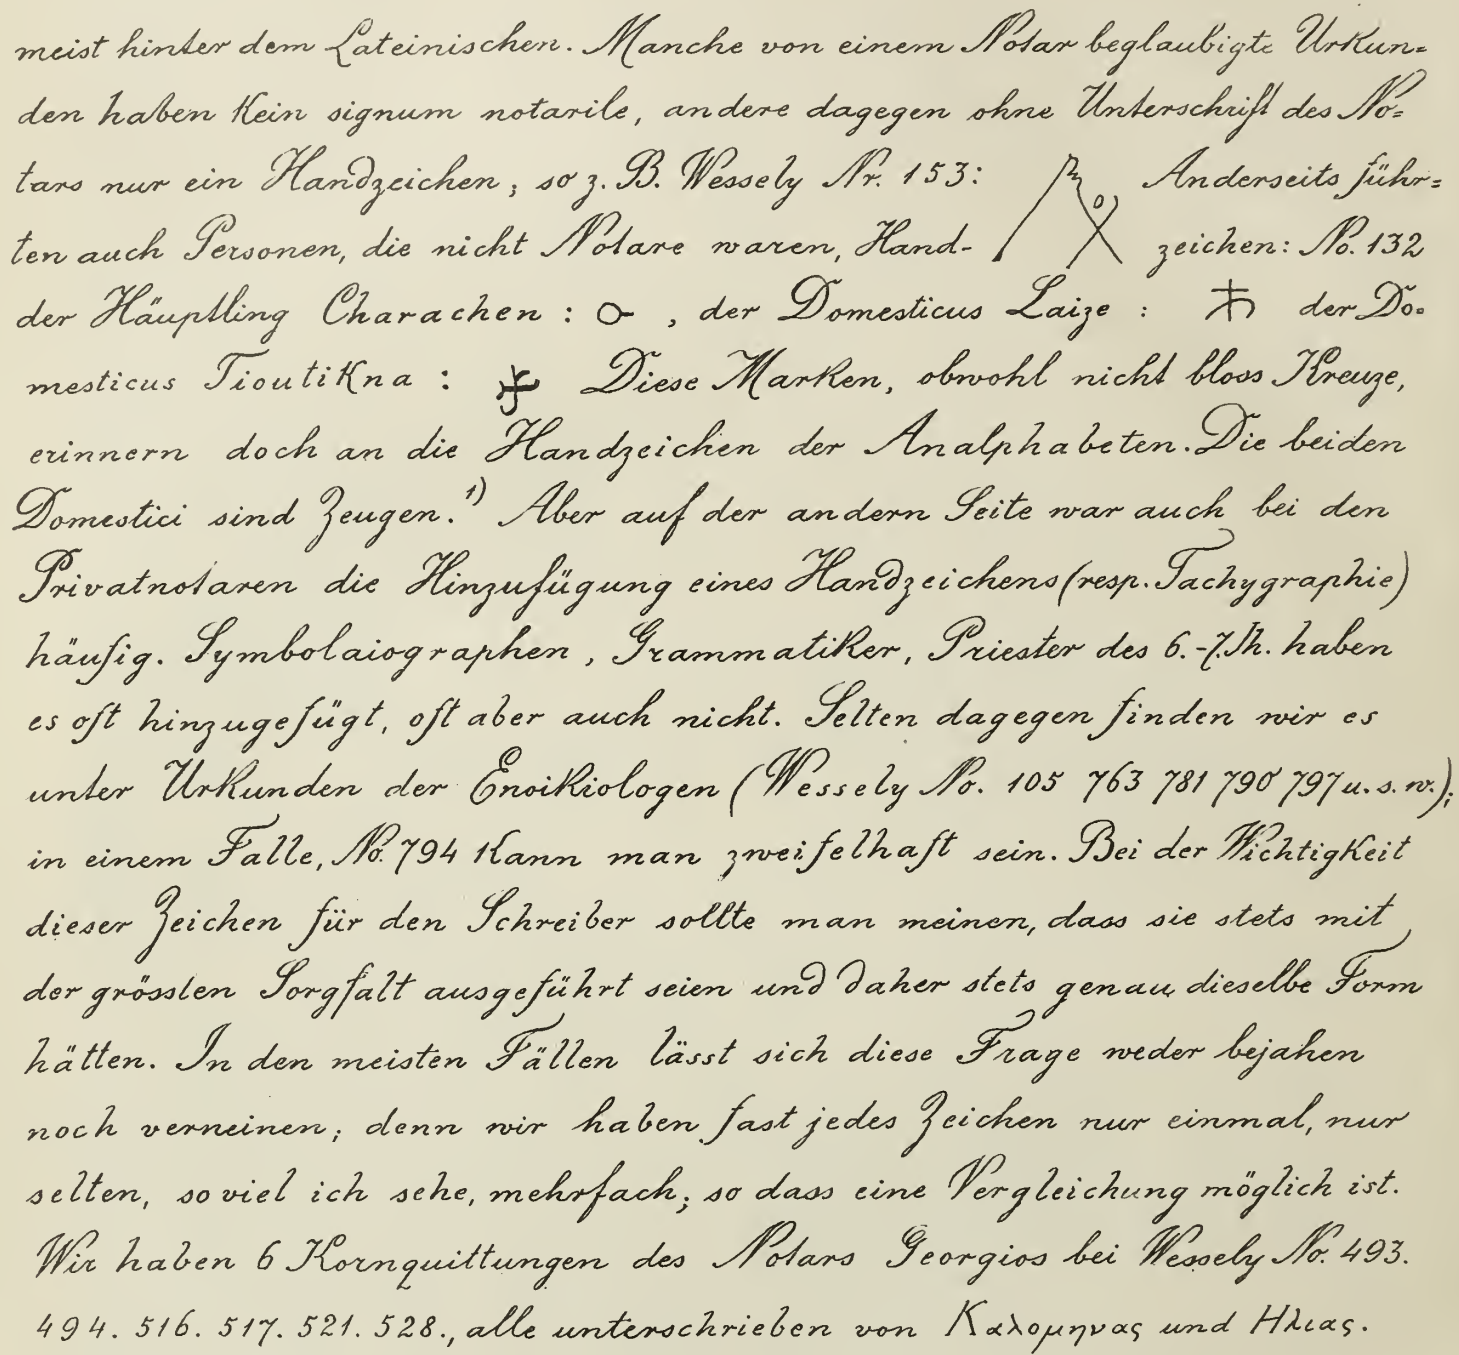 meist hinter dem Lateinischen. Manche von einem Notar beglaubigte Urkun=
den haben kein signum notarile, andere dagegen ohne Unterschrift des No=
tars nur ein Handzeichen; so z. B. Wessely Nr. 153: Anderseits führ=
ten auch Personen, die nicht Notare waren, Hand- zeichen: No. 132
der Häuptling Charachen : , der Domesticus Laize : der Do=
mesticus Tioutikna : Diese Marken, obwohl nicht bloss Kreuze,
erinnern doch an die Handzeichen der Analphabeten. Die beiden
Domestici sind Zeugen.¹) Aber auf der andern Seite war auch bei den
Privatnotaren die Hinzufügung eines Handzeichens (resp. Tachygraphie)
häufig. Symbolaiographen, Grammatiker, Priester des 6.-7. Jh. haben
es oft hinzugefügt, oft aber auch nicht. Selten dagegen finden wir es
unter Urkunden der Enoikiologen (Wessely No. 105 763 781 790 797 u. s. w.);
in einem Falle, No. 794 kann man zweifelhaft sein. Bei der Wichtigkeit
dieser Zeichen für den Schreiber sollte man meinen, dass sie stets mit
der grössten Sorgfalt ausgeführt seien und daher stets genau dieselbe Form
hätten. In den meisten Fällen lässt sich diese Frage weder bejahen
noch verneinen; denn wir haben fast jedes Zeichen nur einmal, nur
selten, so viel ich sehe, mehrfach; so dass eine Vergleichung möglich ist.
Wir haben 6 Kornquittungen des Notars Georgios bei Wessely No. 493.
494. 516. 517. 521. 528., alle unterschrieben von Καλομηνας und Ηλιας.